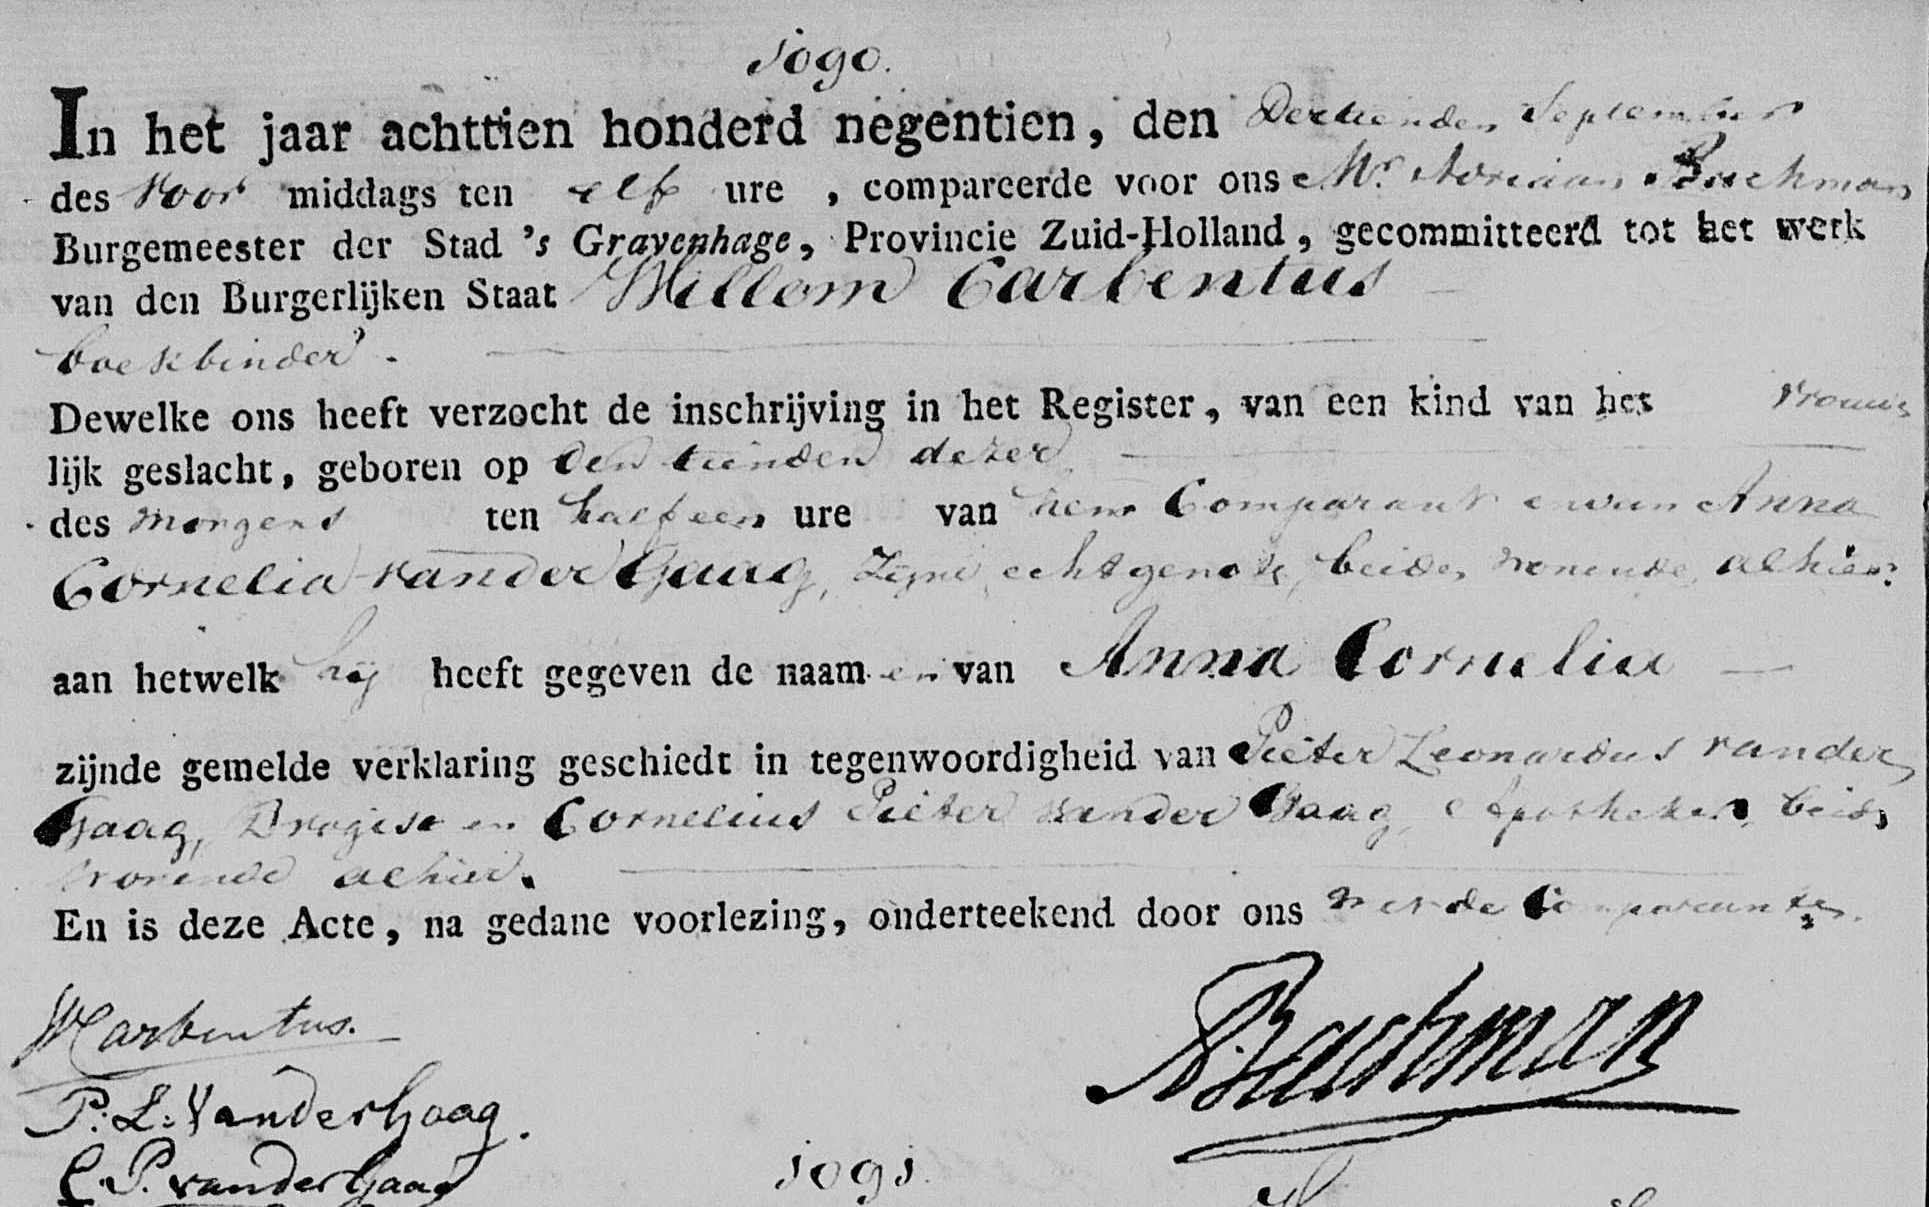 1090.
In het jaar achttien honderd negentien, den Dertienden September
des Voor middags ten elf ure , compareerde voor ons Mr. Adriaan Bachman
Burgemeester der Stad 's Gravenhage, Provincie Zuid-Holland, gecommitteerd tot het werk
van den Burgerlijken Staat Willem Carbentus
boekbinder.
Dewelke ons heeft verzocht de inschrijving in het Register, van een kind van het vrouwe
lijk geslacht, geboren op den tienden dezer
des morgens ten half een ure van hem Comparant en van Anna
Cornelia van der Gaag, zijne echtgenote, beide wonende alhier.
aan hetwelk hij heeft gegeven de naam en van Anna Cornelia
zijnde gemelde verklaring geschiedt in tegenwoordigheid van Pieter Leonardus van der
Gaag, Drogist en Cornelius Pieter van der Gaag, Apotheker, beide
wonende alhier.
En is deze Acte, na gedane voorlezing, onderteekend door ons met de Comparanten.
WCarbentus.
ABachman
P. L. Vander Gaag.
C. P. vander Gaag
1091.